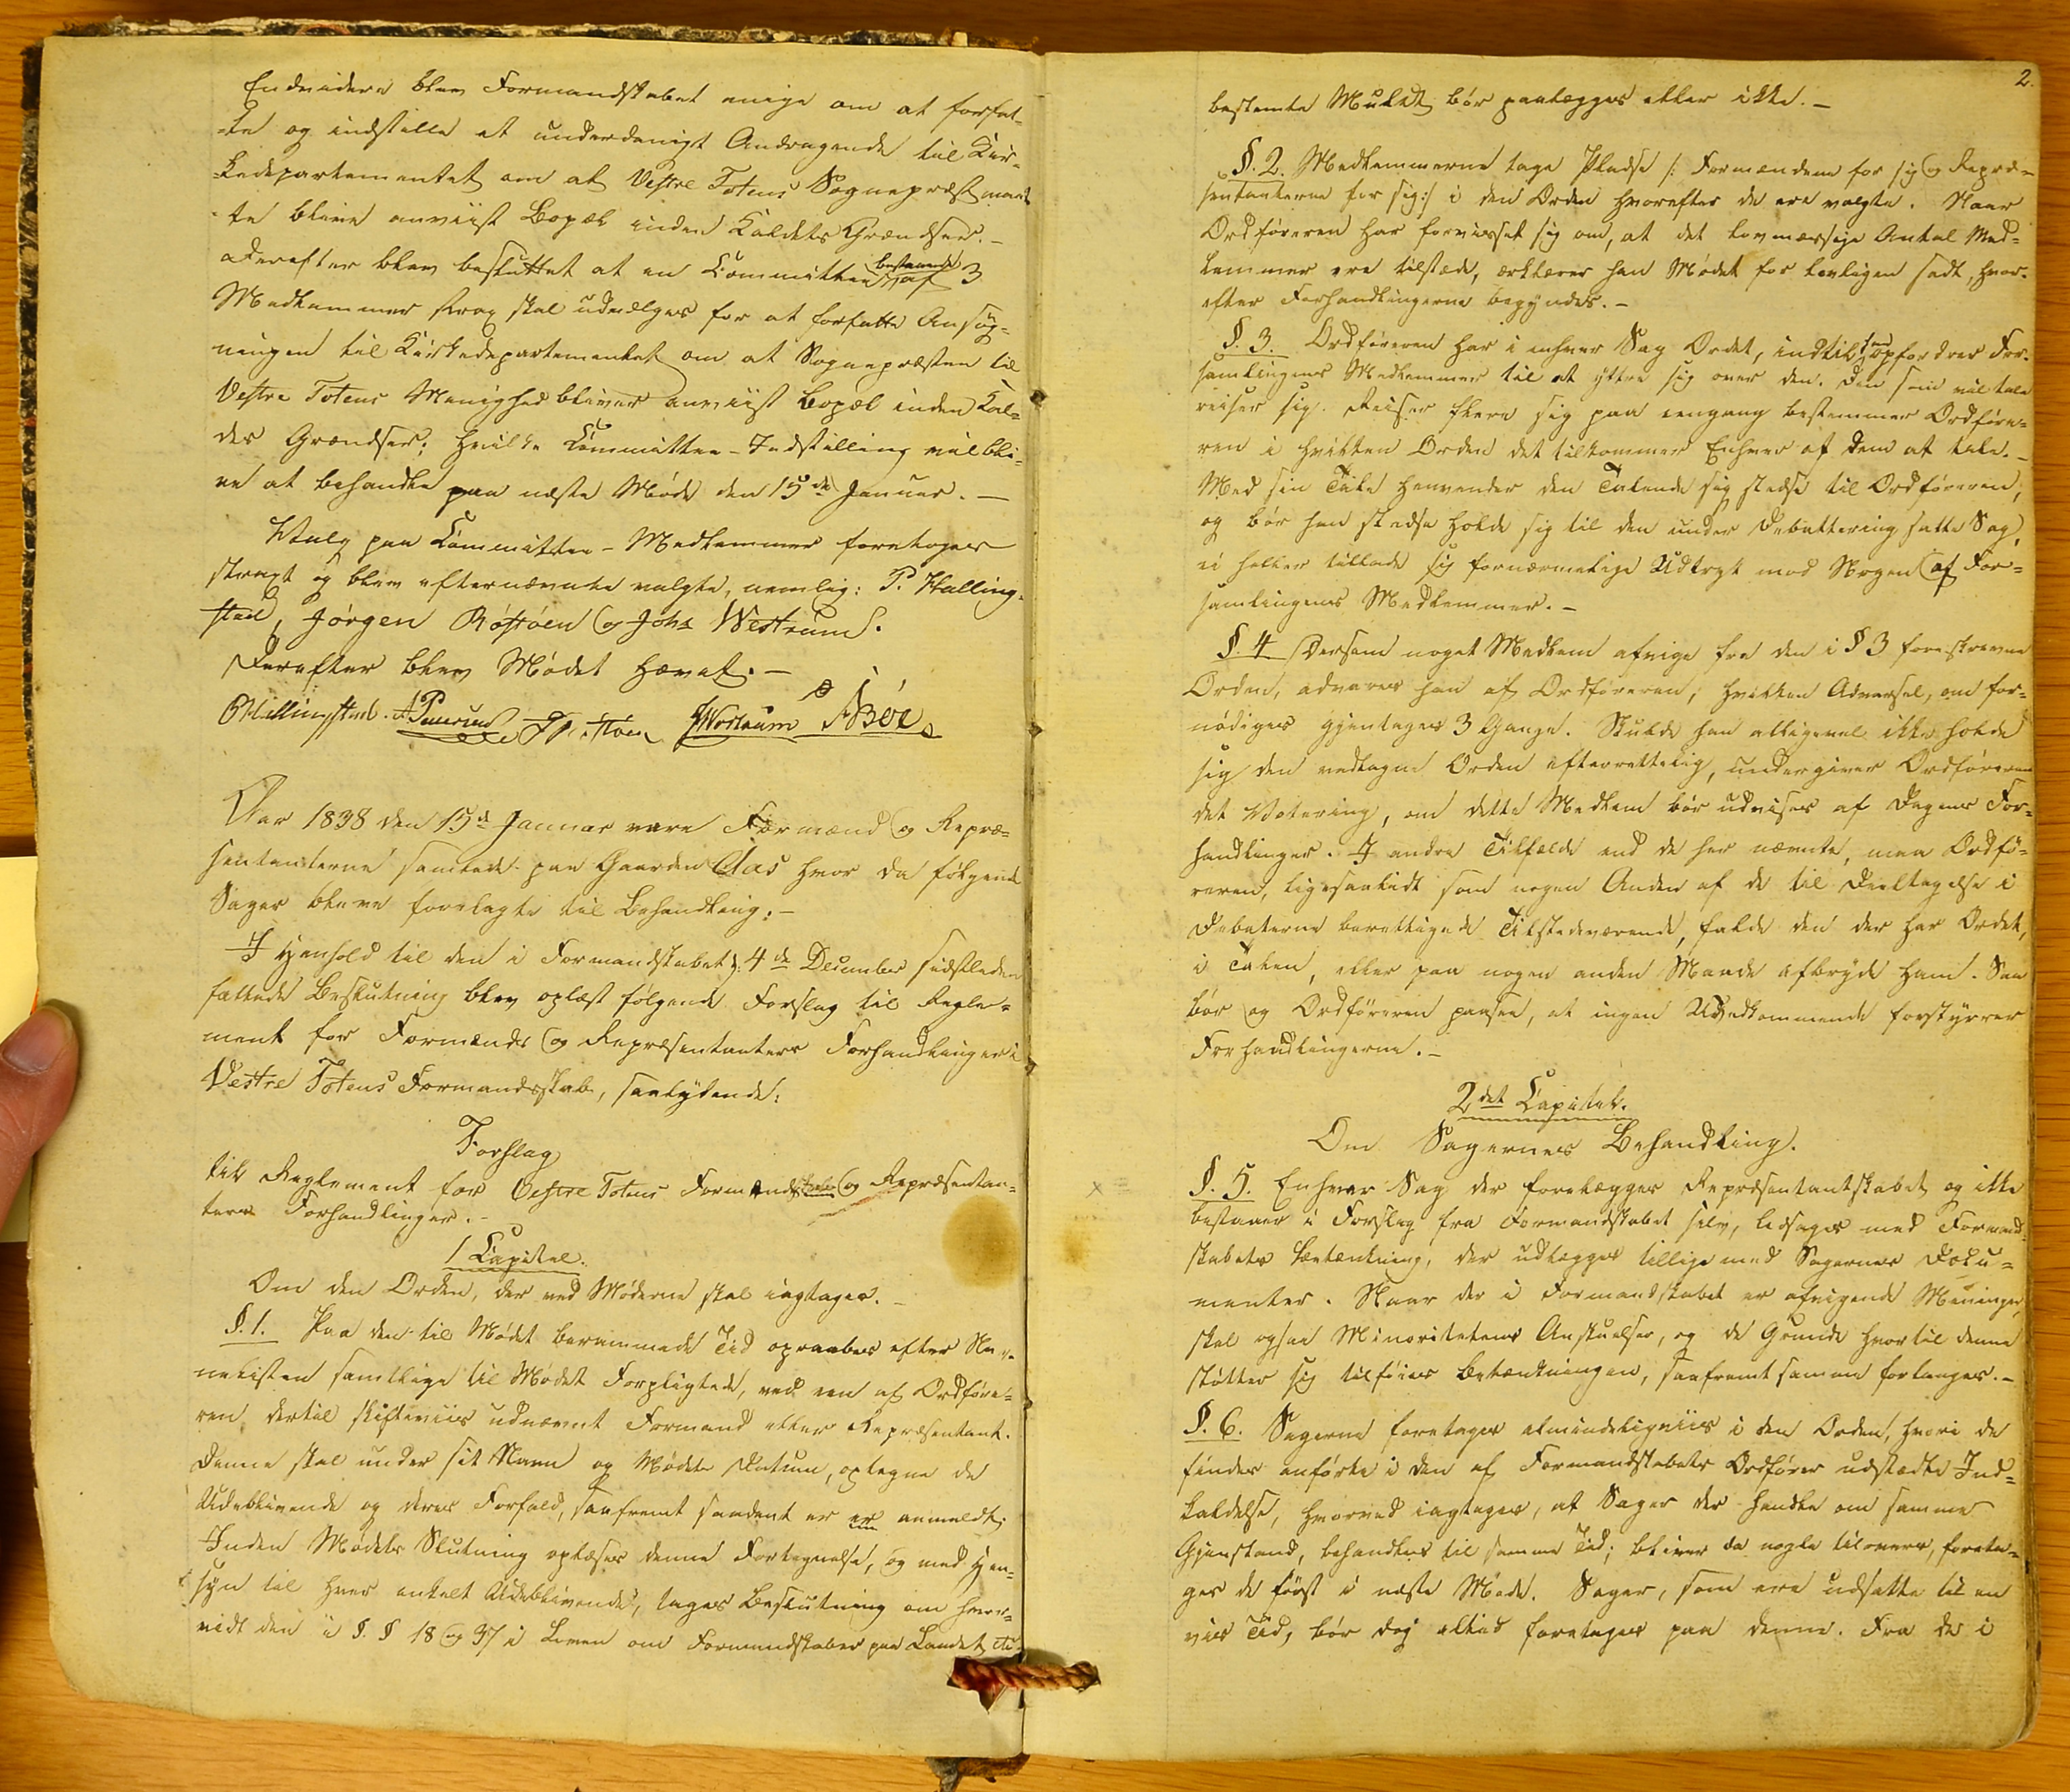 Endvidere blev Formandskabet enige om at forfat-
-te og indstille et underdanigt Andragende til Kir-
-kedepartementet om at Vestre Totens Sognepræst maat
-te blive anviist Bopæl inden Kaldets Grændser. –
Derefter blev besluttet at en Committee bestaaende af 3
Medlemmer strax skal udvælges for at forfatte Ansøg-
ningen til Kirkedepartementet om at Sognepræsten til
Vestre Totens Menighed bliver anviist Bopæl inden Kal-
dets Grændser; hvilke Committee-Indstilling vil bli-
ve at behandle paa næste Møde den 15de Januar. –
Valg paa Committee-Medlemmer foretoges
straxt og blev efternævnte valgte, nemlig: P. Hilling-
stad, Jørgen Røstøen og Johs Westrum.
Derefter blev Mødet hævet. –
PHillingstad. Westrum Böe
Aar 1838 den 15de Januar vare Formænd og Repræ-
sentanterne samlede paa Gaarden Aas hvor da følgende
Sager bleve forelagte til Behandling: –
I Henhold til den i Formandskabet d: 4de December sidstleden
fattede Beslutning blev oplæst følgende Forslag til Regle-
ment for Formænds og Repræsentanters Forhandlinger i
Vestre Totens Formandsskab, saalydende:
Forslag
til Reglement for Vestre Totens Formandskabs og Repræsentan-
ters Forhandlinger. –
1 Capitel.
Om den Orden, der ved Møderne skal iagtages. –
§. 1. Paa den til Mødet berammede Tid opraabes efter Nav-
nelisten samtlige til Mødet Forpligtede, ved en af Ordføre-
ren dertil skifteviis udnævnt Formand eller Repræsentant.
Denne skal under sit Navn og Mødets Datum, optegne de
Udeblivende og deres Forfald, saafremt saadant er er anmeldt.
Inden Mødets Slutning oplæses denne Fortegnelse, og med Hen-
syn til hver enkelt Udeblivende, tages Beslutning om hvor-
vidt den i §. § 18 og 37 i Loven om Formandskaber paa Landet
2.
bestemte Mulct bør paalægges eller ikke. –
§. 2. Medlemmerne tage Plads /: Formændene for sig og Repræ-
sentanterne for sig :/ i den Orden hvorefter de ere valgte. Naar
Ordføreren har forvisset sig om, at det lovmæssige Antal Med-
lemmer ere tilstæde, erklærer han Mødet for lovligen sadt, hvor-
efter Forhandlingerne begyndes. –
§. 3. Ordføreren har i enhver Sag Ordet, indtil han opfordrer For-
samlingens Medlemmer til at yttre sig over den. Den som vil tale
reiser sig. Reiser flere sig paa eengang bestemmer Ordføre-
ren i hvilken Orden det tilkommer Enhver af dem at tale. –
Med sin Tale henvender den Talende sig stedse til Ordføreren,
og bør han stedse holde sig til den under Debattering satte Sag,
ei heller tillade sig fornærmelige Udtryk mod Nogen af For-
samlingens Medlemmer. –
§. 4 Dersom noget Medlem afvige fra den i § 3 foreskrevne
Orden, advares han af Ordføreren, hvilken Advarsel, om for-
nødiges gjentages 3 Gange. Skulde han alligevel ikke holde
sig den vedtagne Orden efterrettelig, undergiver Ordføreren
det Votering, om dette Medlem bør udvises af Dagens For-
handlinger. I andre Tilfælde end de her nævnte, maa Ordfø-
reren, ligesaalidt som nogen Anden af de til Deeltagelse i
Debatterne berettigede Tilstedeværende, falde den der har Ordet,
i Talen, eller paa nogen anden Maade afbryde ham. Saa
bør og Ordføreren paasee, at ingen Uvedkommende forstyrrer
Forhandlingerne. –
2det Capitel.
Om Sagernes Behandling.
§. 5. Enhver Sag der forelægges Repræsentantskabet og ikke
bestaaer i Forslag fra Formandskabet selv, ledsages med Formand-
skabets Betænkning, der udlægges tillige med Sagernes Doku-
menter. Naar der i Formandskabet er afvigende Meninger,
skal ogsaa Minoritetens Anskuelser, og de Grunde hvortil denne
støtter sig tilføies Betænkningen, saafremt samme forlanges. –
§. 6. Sagerne foretages almindeligviis i den Orden, hvori de
findes anførte i den af Formandskabets Ordfører udstædte Ind-
kaldelse, hvorved iagtages, at Sager der handle om samme
Gjenstand, behandles til samme Tid; bliver da nogle tilovers, foreta-
ges de først i næste Møde. Sager, som ere udsatte til en
vis Tid, bør dog altid foretages paa denne. Fra de i